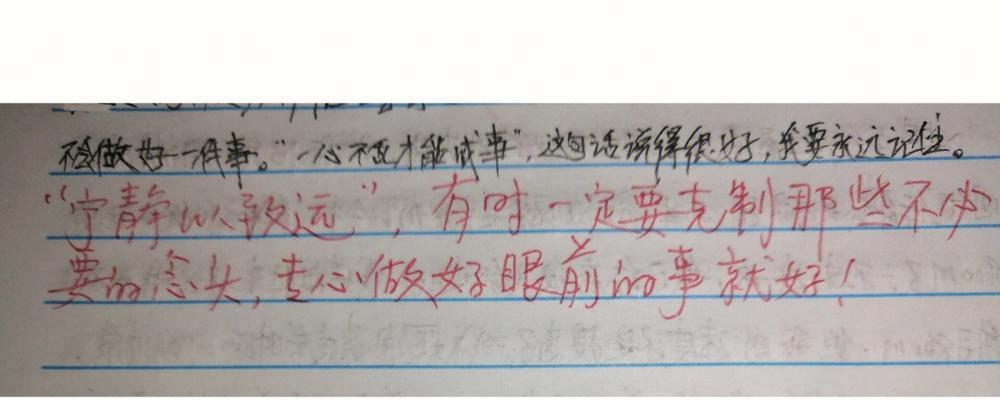 不会做好一件事。"一心不乱才能成事",这句话说得很好,我要永远记住。
"宁静以致远",有时一定要克制那些不必
要的念头,专心做好眼前的事就好!